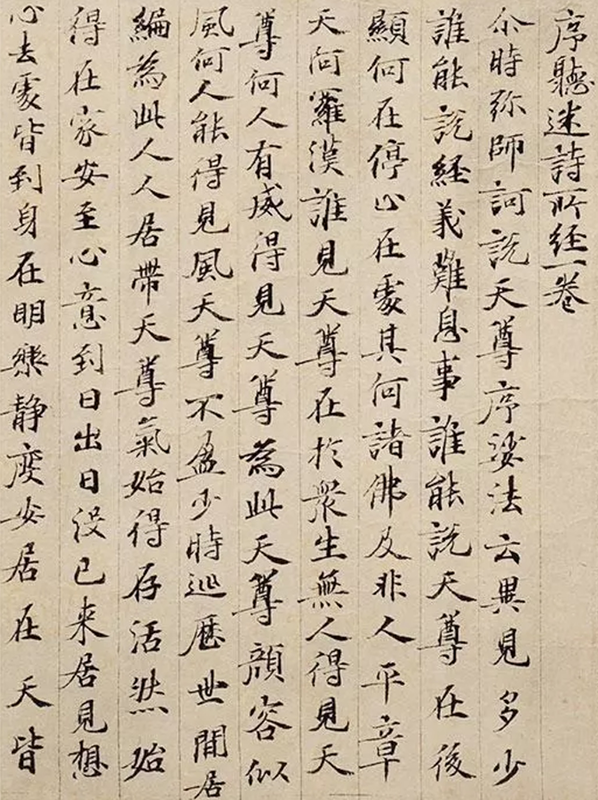 序聽迷詩所経一卷
尒時弥師訶說天尊序娑法云異見多少
誰能說経義難息事誰能說天尊在後
顯何在停止在處其何諸佛及非人平章
天向羅漢誰見天尊在於衆生無人得見天
尊何人有威得見天尊為此天尊顔容似
風何人能得見風天尊不盈少時巡歷世間居
編為此人人居帶天尊氣始得存活然始
得在家安至心意到日出日没已来居見想
心去處皆到身在明樂静度安居在天皆